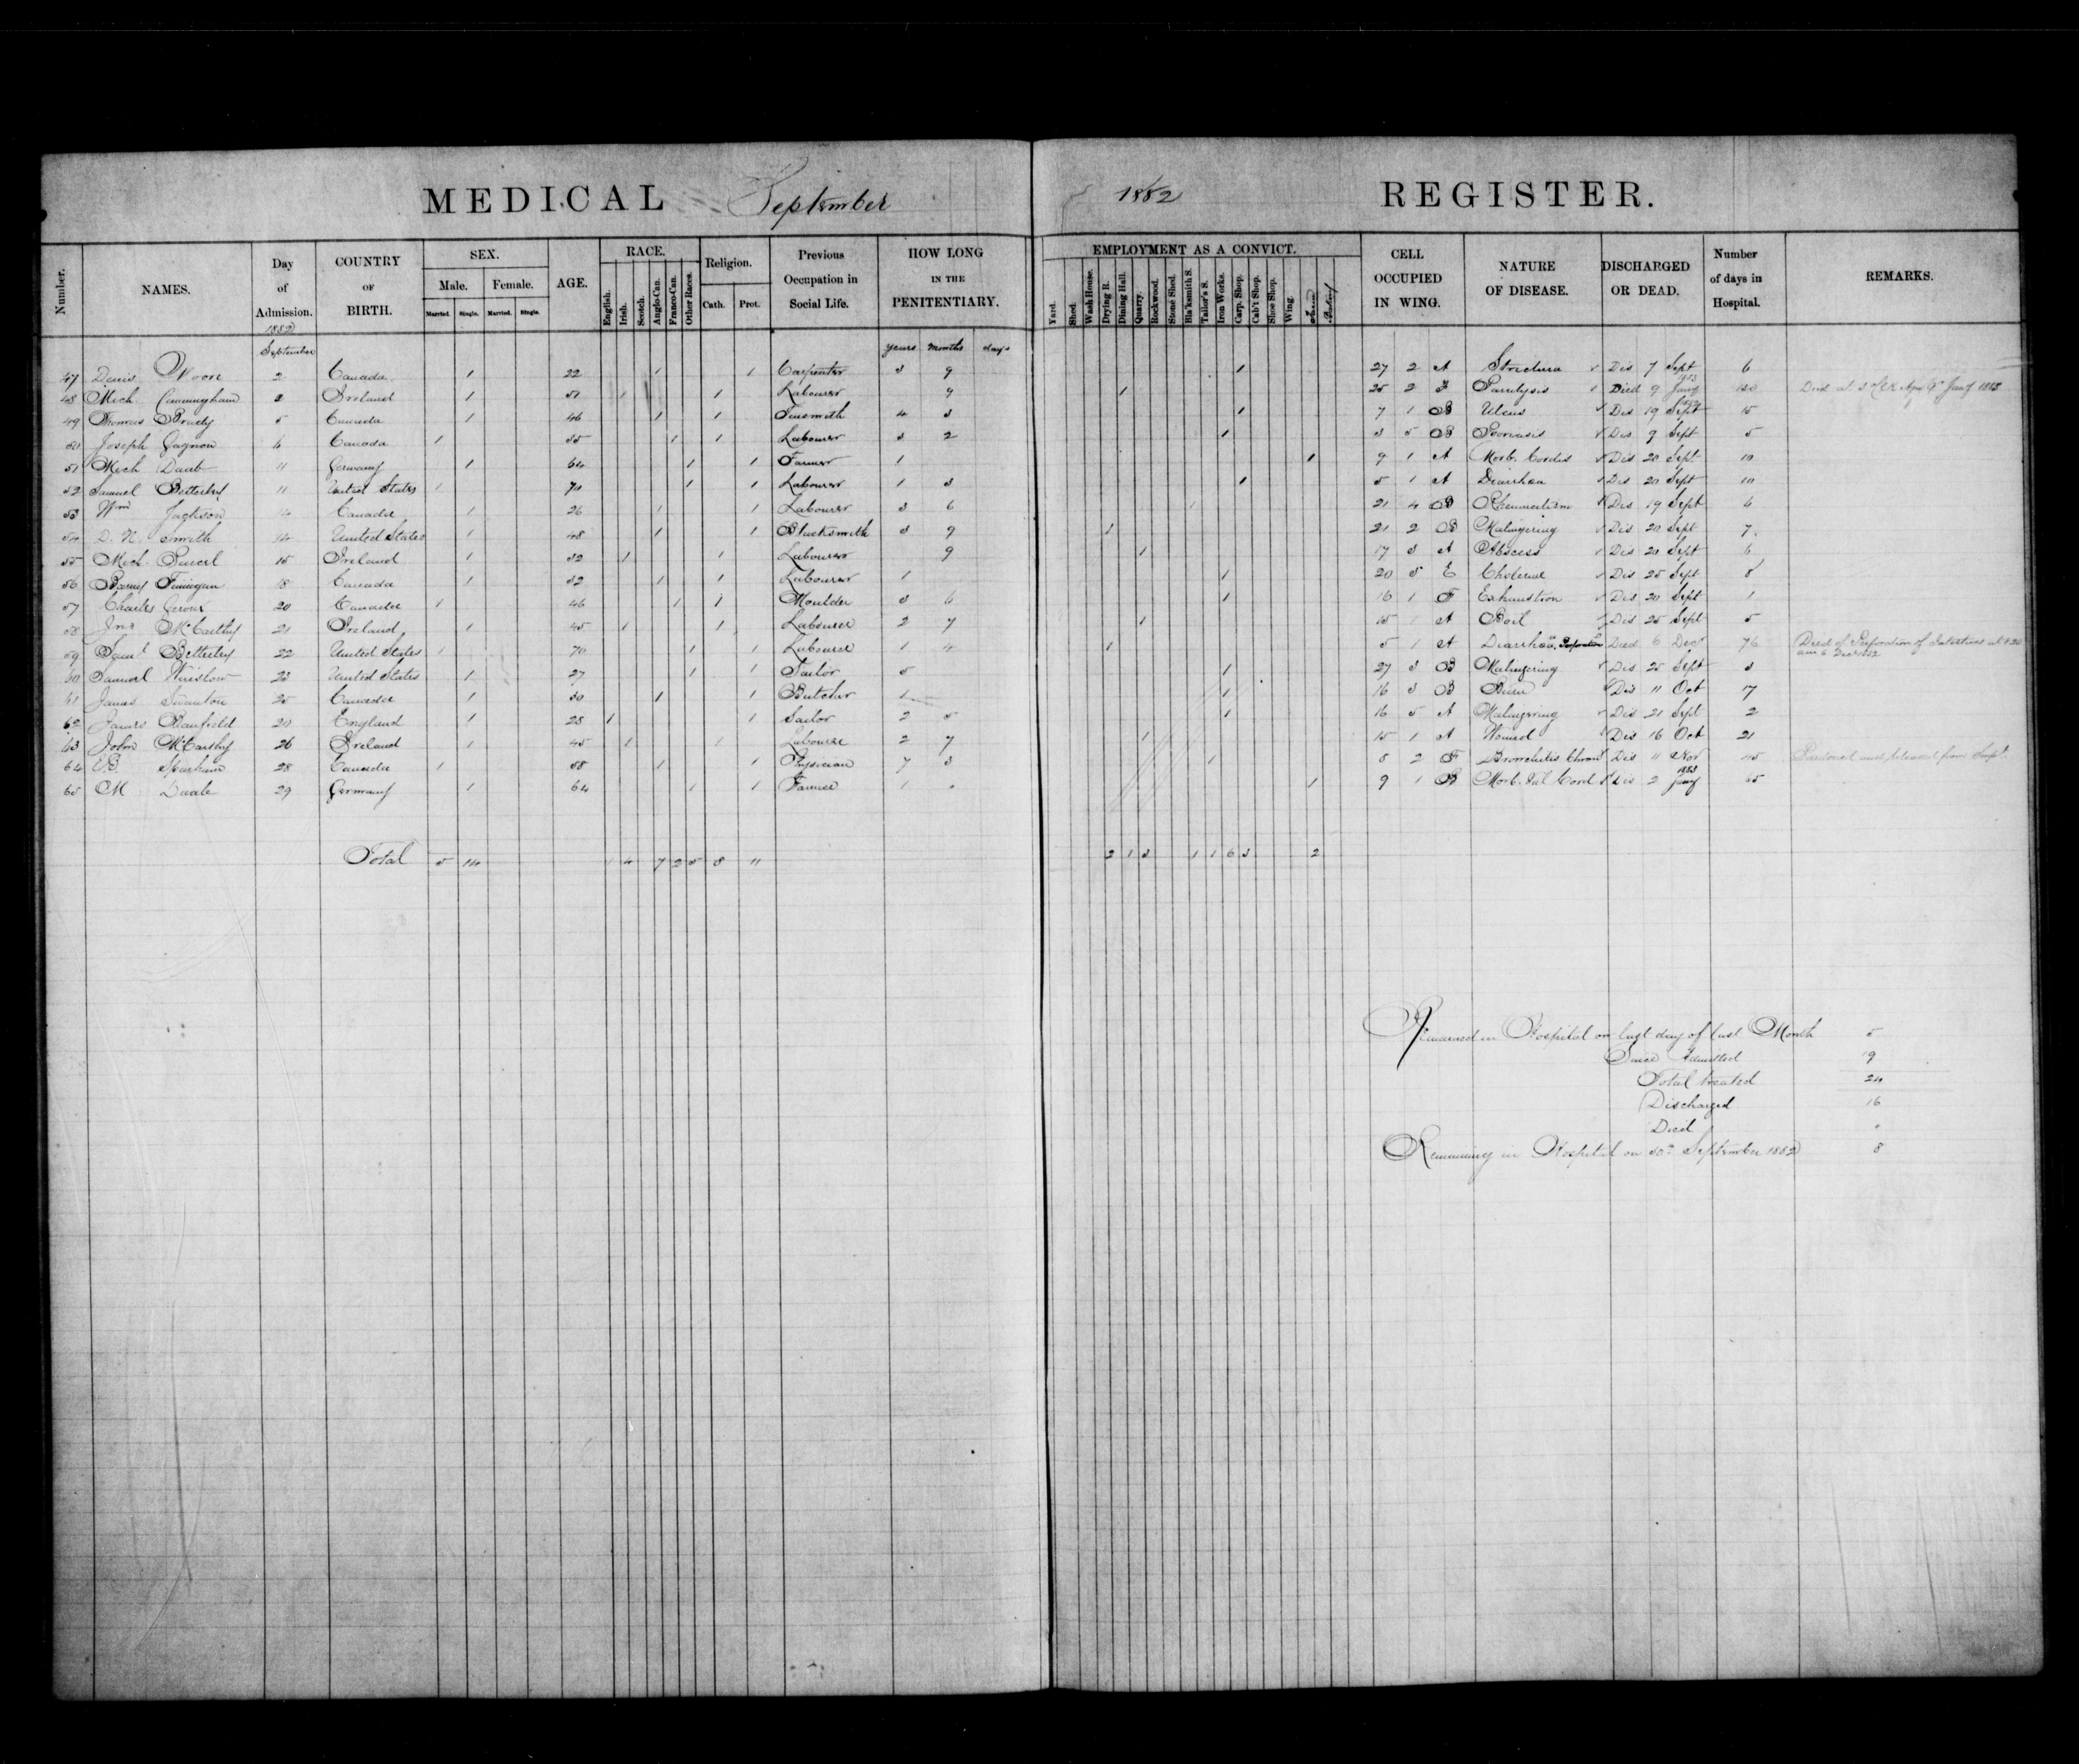 MEDICAL September 1882 REGISTER.
Number. NAMES. Day of Admission. COUNTRY OF BIRTH. SEX. Male. Married. Single. Female. Married. Single. AGE. RACE. English. Irish. Scotch. Anglo-Can. Franco-Can. Other Races. Religion. Cath. Prot. Previous Occupation in Social Life. HOW LONG IN THE PENITENTIARY. EMPLOYMENT AS A CONVICT. Yard. Shed. Wash House. Drying R. Dining Hall. Quarry. Rockwood. Stone Shed. Bla'ksmith S. Tailor's S. Iron Works. Carp. Shop. Cab't Shop. Shoe Shop. Wing. Farm CELL OCCUPIED IN WING. NATURE OF DISEASE. DISCHARGED OR DEAD. Number of days in Hospital. REMARKS.
1882
September years months days
47 Denis Moore 2 Canada 1 22 1 1 Carpenter 3 9 1 27 2 A Strictura Dis 7 Sept 6
48 Mich Cunningham 2 Ireland 1 51 1 1 Labourer 9 1 25 2 F Paralysis Died 9 Jany 1883 130 Died at 3 9th Jany 1883
49 Thomas Brady 5 Canada 1 46 1 1 Tinsmith 4 3 1 7 1 B Ulcus Dis 19 Sept 15
50 Joseph Gagnon 6 Canada 1 35 1 1 Labourer 3 2 1 3 5 B Psoriasis Dis 9 Sept 5
51 Mich Daub 11 Germany 1 64 1 1 Farmer 1 1 9 1 A Morb. Cordis Dis 20 Sept 10
52 Samuel Betterley 11 United States 1 70 1 1 Labourer 1 3 1 5 1 A Diarrhœa Dis 20 Sept 10
53 Wm Jackson 14 Canada 1 26 1 1 Labourer 3 6 1 21 4 B Rheumatism Dis 19 Sept 6
54 D. N. Smith 14 United States 1 48 1 1 Blacksmith 3 9 1 21 2 B Malingering Dis 20 Sept 7
55 Mich Purcel 15 Ireland 1 32 1 1 Labourer 9 1 17 3 A Abscess Dis 20 Sept 6
56 Barney Finnigan 18 Canada 1 32 1 1 Labourer 1 1 20 5 E Cholerae Dis 25 Sept 8
57 Charles Giroux 20 Canada 1 46 1 1 Moulder 3 6 1 16 1 F Exhaustion Dis 20 Sept 1
58 Jno McCarthy 21 Ireland 1 45 1 1 Labourer 2 7 1 15 1 A Boil Dis 25 Sept 5
59 Saml Betterley 22 United States 1 70 1 1 Labourer 1 4 1 5 1 A Diarrhœa, Perforation Died 6 Dec 76 Died of Perforation of Intestines at 4.20 am 6 Dec 1882
60 Samuel Winslow 23 United States 1 27 1 1 Tailor 5 1 27 3 B Malingering Dis 25 Sept 3
61 James Swanton 25 Canada 1 30 1 1 Butcher 1 1 16 3 B Burn Dis 11 Oct 17
62 James Banfield 20 England 1 28 1 1 Sailor 2 5 1 16 5 A Malingering Dis 21 Sept 2
63 John McCarthy 26 Ireland 1 45 1 1 Labourer 2 7 1 15 1 A Wound Dis 16 Oct 21
64 E.B. Sparham 28 Canada 1 58 1 1 Physician 7 3 1 8 2 F Bronchitis Chron Dis 11 Nov 45 Pardoned and released from Hospl.
65 M Daub 29 Germany 1 64 1 1 Farmer 1 1 9 1 B Morb. Val Cord Dis 2 Jany 1883 95
Total 5 14 1 4 7 2 5 8 11 2 1 3 1 1 6 3 2
Remained in Hospital on last day of last Month 5
Since Admitted 19
Total treated 24
Discharged 16
Died "
Remaining in Hospital on 30th September 1882 8